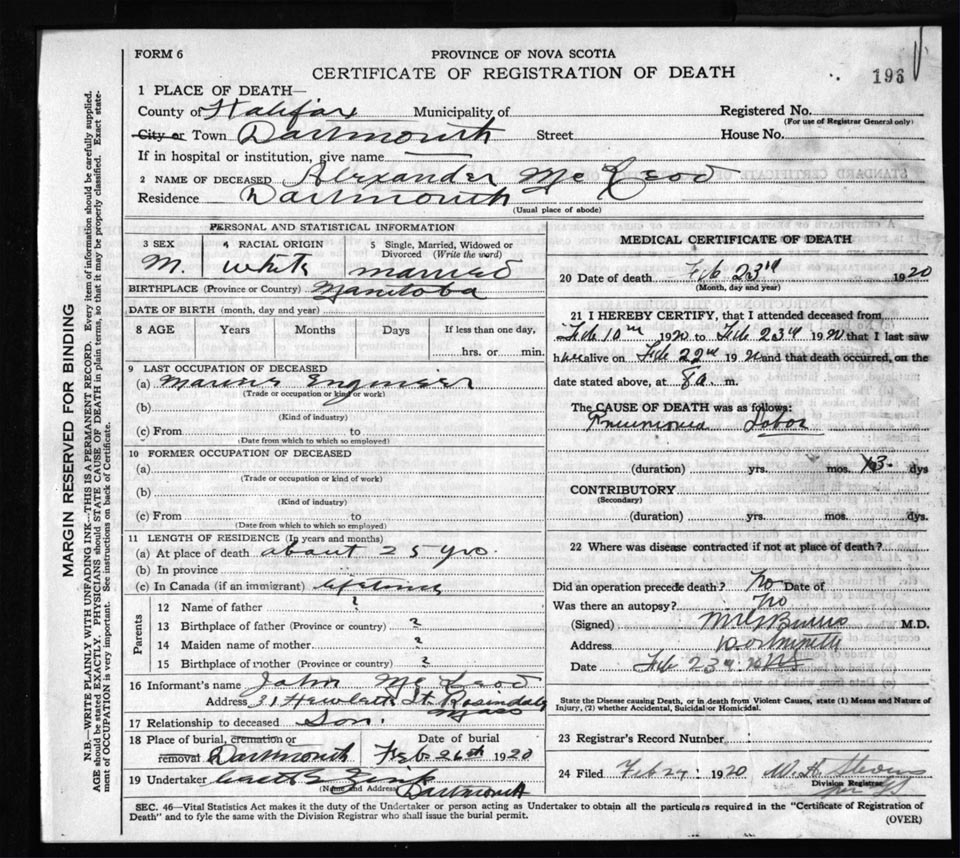 FORM 6
PROVINCE OF NOVA SCOTIA
CERTIFICATE OF REGISTRATION OF DEATH
193
1 PLACE OF DEATH—
County of Halifax Municipality of
Registered No.
(For use of Registrar General only)
City or Town Dartmouth Street House No.
If in hospital or institution, give name
2 NAME OF DECEASED Alexander McLeod
Residence Dartmouth
(Usual place of abode)
PERSONAL AND STATISTICAL INFORMATION
3 SEX 4 RACIAL ORIGIN 5 Single, Married, Widowed or Divorced (Write the word)
M. White married
BIRTHPLACE (Province or Country) Manitoba
DATE OF BIRTH (month, day and year)
8 AGE Years Months Days If less than one day,
hrs. or min.
9 LAST OCCUPATION OF DECEASED
(a) Marine Engineer
(Trade or occupation or kind or work)
(b)
(Kind of industry)
(c) From to
(Date from which to which so employed)
10 FORMER OCCUPATION OF DECEASED
(a)
(Trade or occupation or kind of work)
(b)
(Kind of industry)
(c) From to
(Date from which to which so employed)
11 LENGTH OF RESIDENCE (In years and months)
(a) At place of death about 25 yrs.
(b) In province
(c) In Canada (if an immigrant) lifetime
Parents
12 Name of father ?
13 Birthplace of father (Province or country) ?
14 Maiden name of mother ?
15 Birthplace of mother (Province or country) ?
16 Informant's name John McLeod
Address 31 St. Rosindale
Mass
17 Relationship to deceased Son.
18 Place of burial, cremation or removal Dartmouth
Date of burial Feb. 26th 1920
19 Undertaker
(Name and Address) Dartmouth
MEDICAL CERTIFICATE OF DEATH
20 Date of death Feb 23rd 1920
(Month, day and year)
21 I HEREBY CERTIFY, that I attended deceased from
Feb 10th 1920 to Feb 23rd 1920 that I last saw
h alive on Feb 22nd 1920 and that death occurred, on the
date stated above, at 8 a. m.
The CAUSE OF DEATH was as follows:
Pneumonia Lobar
(duration) yrs. mos. 13. dys
CONTRIBUTORY
(Secondary)
(duration) yrs. mos. dys.
22 Where was disease contracted if not at place of death?
Did an operation precede death? No Date of
Was there an autopsy? No
(Signed) M.D.
Address
Date Feb 23rd
State the Disease causing Death, or in death from Violent Causes, state (1) Means and Nature of
Injury, (2) whether Accidental, Suicidal or Homicidal.
23 Registrar's Record Number
24 Filed Feb 27 1920 W. H.
Division Registrar
SEC. 46—Vital Statistics Act makes it the duty of the Undertaker or person acting as Undertaker to obtain all the particulars required in the "Certificate of Registration of
Death" and to fyle the same with the Division Registrar who shall issue the burial permit.
(OVER)
MARGIN RESERVED FOR BINDING
N.B.—WRITE PLAINLY WITH UNFADING INK—THIS IS A PERMANENT RECORD. Every item of information should be carefully supplied.
AGE should be stated EXACTLY. PHYSICIANS should STATE CAUSE OF DEATH in plain terms, so that it may be properly classified. Exact state-
ment of OCCUPATION is very important. See instructions on back of Certificate.